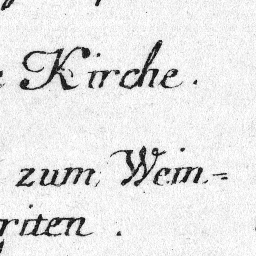 Kirche.
zum, Wein=
riten.